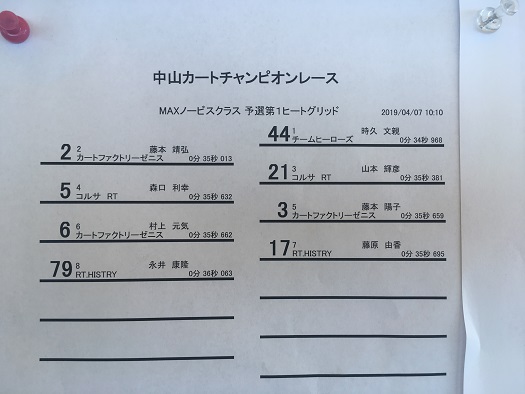 中山カートチャンピオンレース
MAXノービスクラス 予選第1ヒートグリッド 2019/04/07 10:10
44 1 時久 文親
チームヒーローズ 0分 34秒 968
2 2 藤本 靖弘
カートファクトリーゼニス 0分 35秒 013
21 3 山本 輝彦
コルサ RT 0分 35秒 381
5 4 森口 利幸
コルサ RT 0分 35秒 632
3 5 藤本 陽子
カートファクトリーゼニス 0分 35秒 659
6 6 村上 元気
カートファクトリーゼニス 0分 35秒 662
17 7 藤原 由香
RT.HISTRY 0分 35秒 695
79 8 永井 康隆
RT.HISTRY 0分 36秒 063